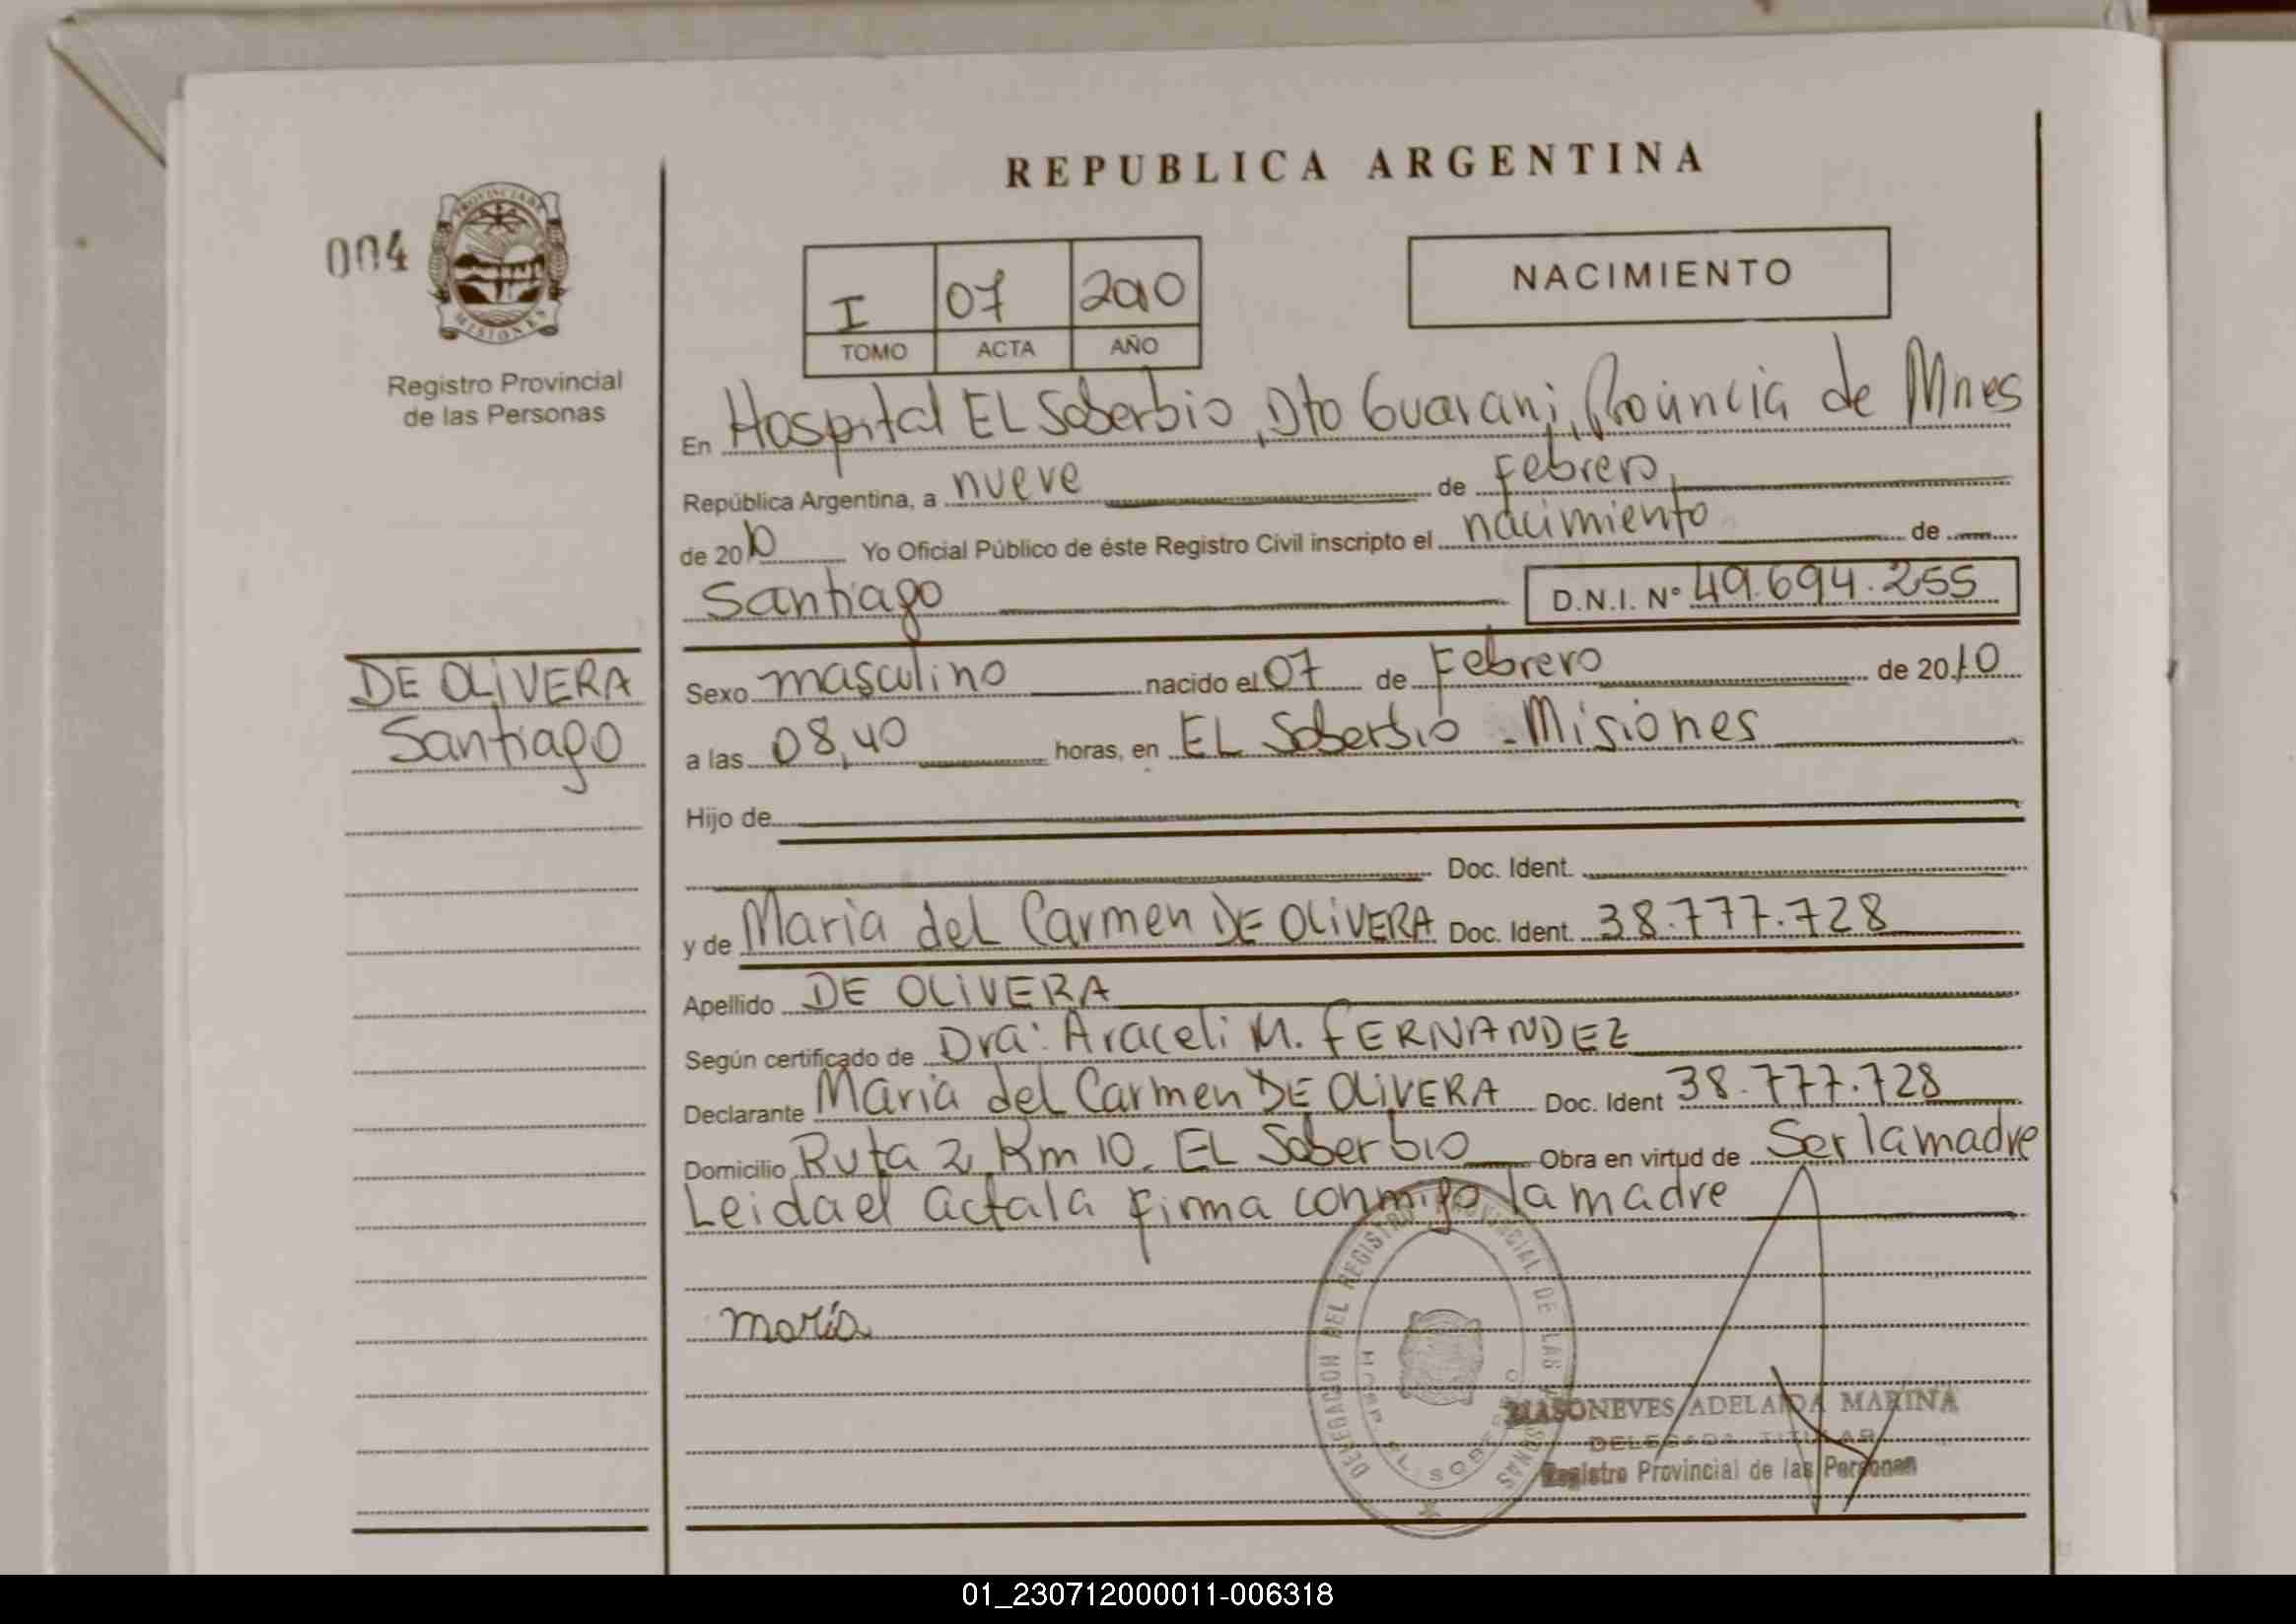 REPUBLICA ARGENTINA
004
PROVINCIA DE
MISIONES
Registro Provincial
de las Personas
I 07 2010
TOMO ACTA AÑO
NACIMIENTO
En Hospital EL Soberbio, Dto Guarani, Provincia de Mnes
República Argentina, a nueve de Febrero
de 2010 Yo Oficial Público de éste Registro Civil inscripto el nacimiento de
Santiago D.N.I. Nº 49.694.255
DE OLIVERA
Santiago
Sexo masculino nacido el 07 de Febrero de 2010
a las 08,40 horas, en EL Soberbio - Misiones
Hijo de
Doc. Ident.
y de Maria del Carmen DE OLIVERA Doc. Ident. 38.777.728
Apellido DE OLIVERA
Según certificado de Dra: Araceli M. FERNANDEZ
Declarante Maria del Carmen DE OLIVERA Doc. Ident 38.777.728
Domicilio Ruta 2 Km 10. EL Soberbio Obra en virtud de Ser la madre
Leida el acta la firma conmigo la madre
maría
DELEGACION DEL REGISTRO PROVINCIAL DE LAS PERSONAS
HOSP. EL SOBERBIO
MASONEVES ADELAIDA MARINA
DELEGADA TITULAR
Registro Provincial de las Personas
01_230712000011-006318